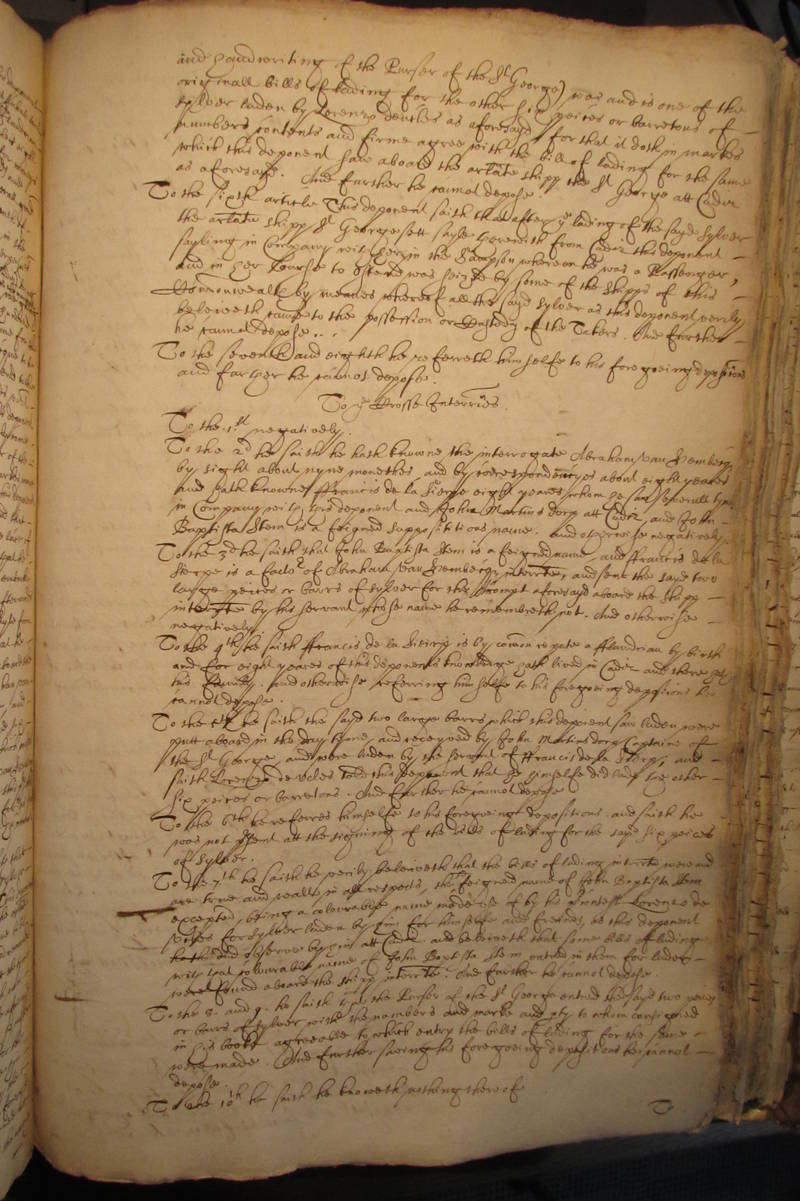 and handwriting of the Purser of the St George) was and is one of the
originall bills of lading for the other six peices or barretons of
sylver laden by Lorenzo as aforesayd for that it doth in markes
numbers contents and firme agree with the bill of lading for the same
which this deponent saw aboard the arlate shipp the St George att Cadiz
as aforesayd. And further he cannot depose.
To the sixth article This deponent saith that after ye lading of the sayd sylver
the arlate shipp St George sett sayle therewith from Cadiz this deponent
sayling in Company with her in the Sampson whereon he was a Passenger,
and in her Course to Ostend was seized by some of the shipps of this
Commonwealth by meanes whereof all the sayd sylver as this deponent verily
beleiveth came to the possession or Custody of the Takers. And further
he cannot depose.
To the seventh and eighth he referreth himselfe to his foregoeing depositions
and farther he cannot depose.
To ye Crosse Interries.
To the 1st negatively.
To the 2d he saith he hath knowne the interrogate Abraham van
by sight about nyne monethes, and by correspondencyes about eight yeares
and hath knowne ffrancis de la eight yeares whom he saw severall tymes
in Company with this deponent and John Martins dorp att Cadiz, and John
Baptista Stem is a feigned supposititious name. And otherwise negatively.
To the 3d he saith that John Baptista Stem is a feigned name, and ffrancis de la
is a factor of Abraham van interrte, and sent the sayd two
large peices or barrs of sylver for the accompt aforesayd aboard the shipp
interrte by his servant whose name he remembreth not. And otherwise
negatively.
To the 4th he saith ffrancis de la is by common repute a fflandrian by birth
and for eight yeares of this deponents knowledge hath lived in Cadiz and there
his family. And otherwise referring himselfe to his foregoeing depositions he
cannot depose.
To the 5th he saith the sayd two large barrs which this deponent saw laden were
putt aboard in the day tyme, and receyved by John Martins dorp Captaine of
the St George, and were laden by the servant of ffrancis de la and
saith Lorenzo told this deponent that he himselfe did lade the other
six peices or barretons. And further he cannot depose
To the 6th he referres himselfe to his foregoeing depositions. and saith he
was not present att the signing of the bills of lading for the sayd six peices
of sylver.
To the 7th he saith he verily beleiveth that the bills of lading interrte were and
are true and reall in all respects, the feigned name of John Baptista Stem
excepted, being a colourable name made use of by his Lorenzo de
for sylver laden by him for himselfe and freindes, as this deponent
hath and observed by him att Cadiz and beleiveth that some bills of lading
with that colourable name of John Baptista Stem entred in them for
were found aboard the shipp interrte. And further he cannot depose
To the 8. and 9. he saith that the Purser of the St George entred the sayd two peices
or barrs of sylver with the numbers and marke and pty to whom consigned
in his booke agreeable to which entry the bills of lading for the same
were made. And further saving his foregoeing depositions he cannot
depose.
To the 10th he saith he knoweth nothing thereof
To